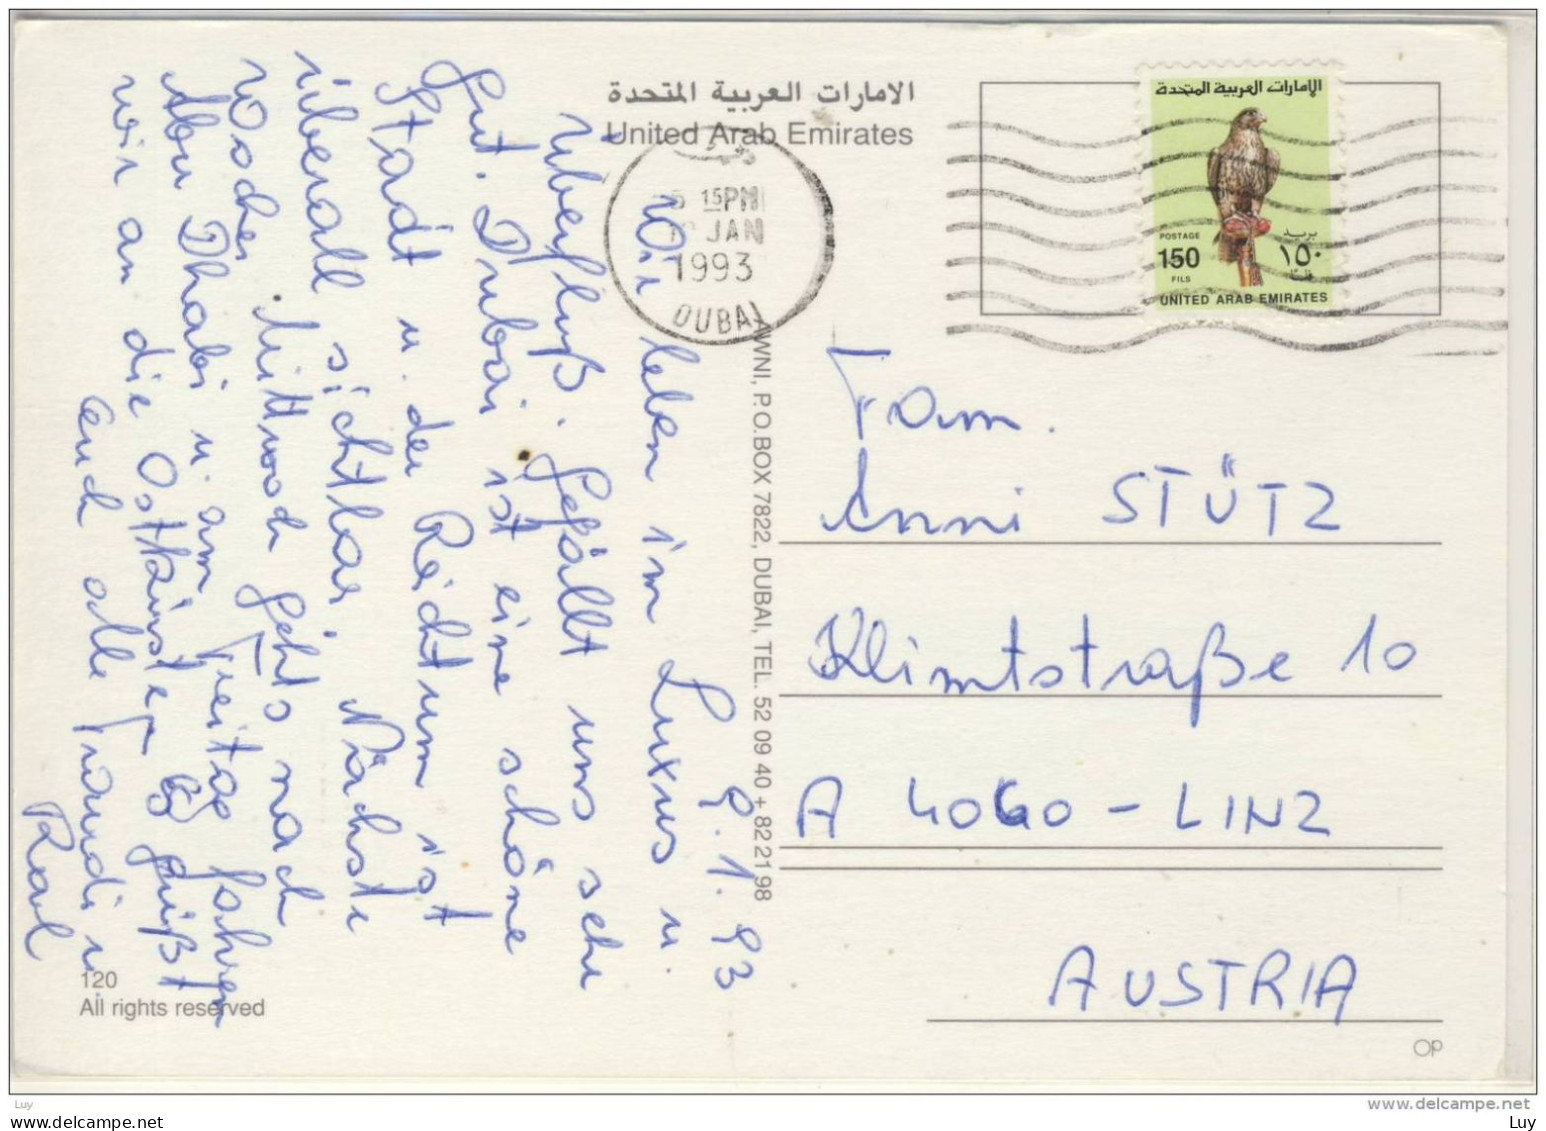 الامارات العربية المتحدة
United Arab Emirates
9.1.93
Wir leben im Luxus u.
Überfluß. Gefällt uns sehr
gut. Dubai ist eine schöne
Stadt u. der Reichtum ist
überall sichtbar. Nächste
Woche Mittwoch geht's nach
Abu Dhabi u. am Freitag fahren
wir an die Ostküste. Es grüßt
Euch alle
Karl
120
All rights reserved
AWNI, P.O.BOX 7822, DUBAI, TEL. 52 09 40 + 82 21 98
15PM
JAN
1993
DUBAI
الامارات العربية المتحدة
POSTAGE
بريد
150
١٥٠
FILS
فلس
UNITED ARAB EMIRATES
Fam.
Anni STÜTZ
Klimtstraße 10
A 4060 - LINZ
AUSTRIA
OP
www.delcampe.net
Luy
Luy
www.delcampe.net
Luy